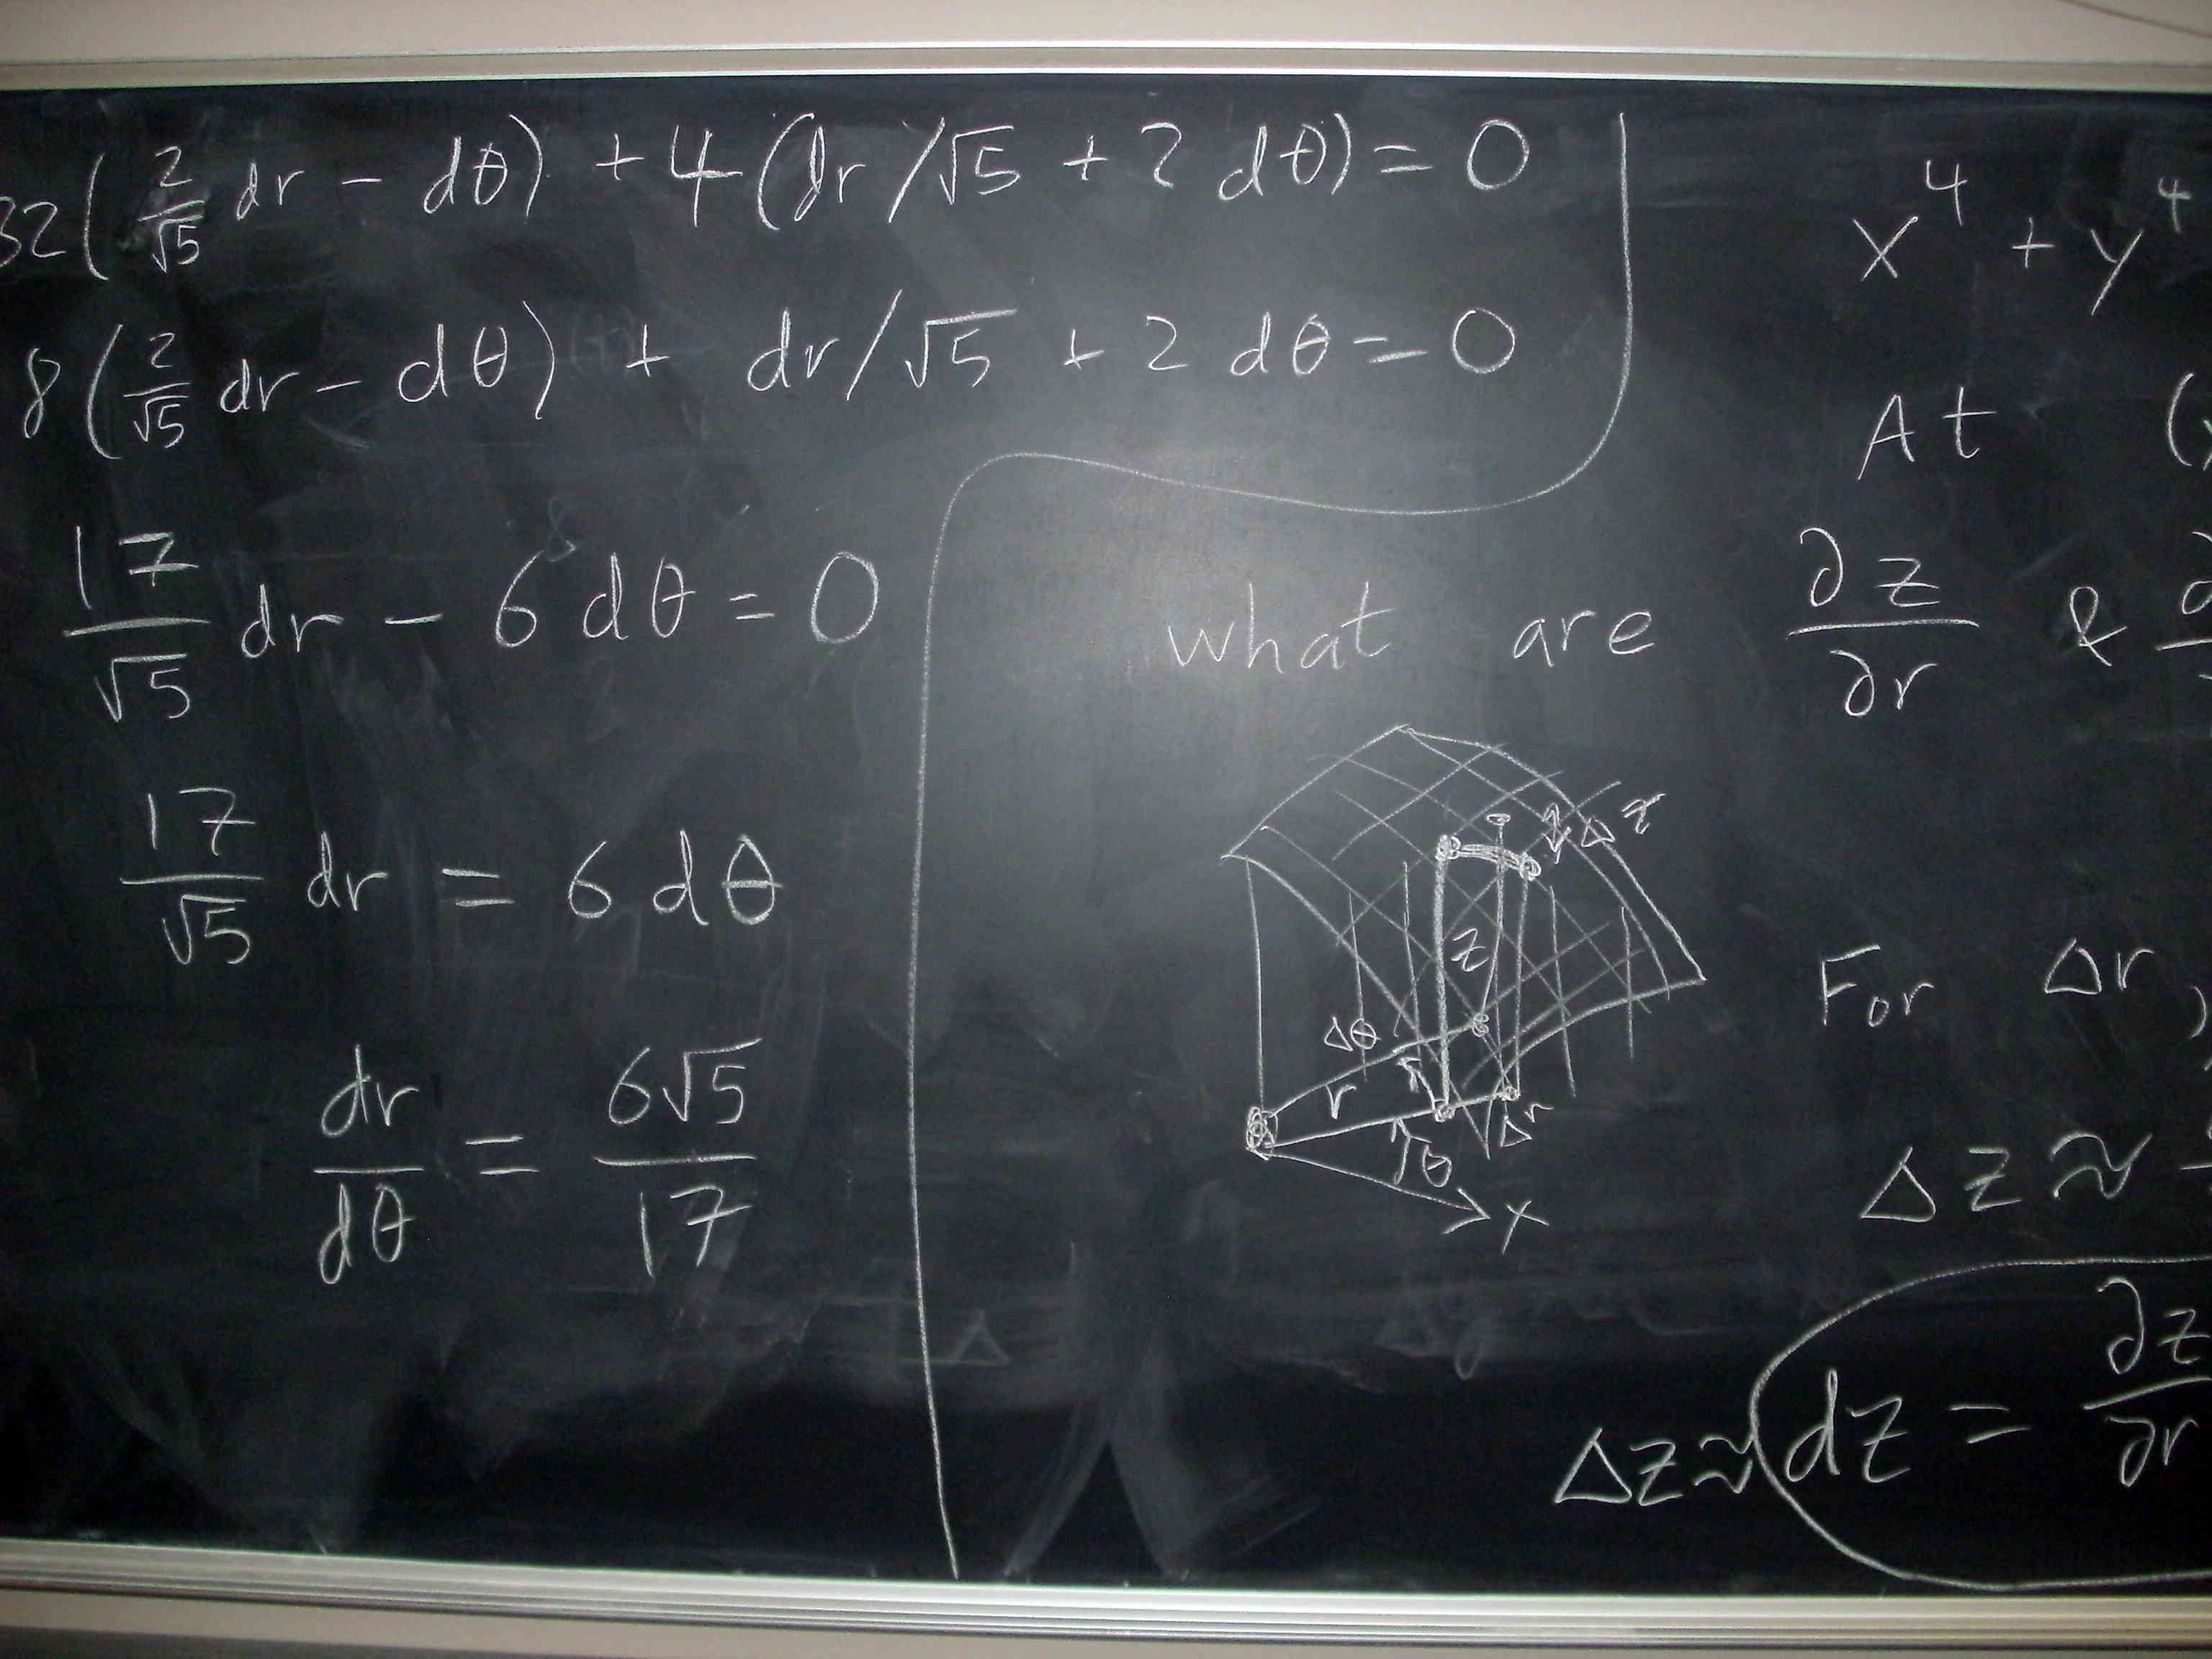 32(2/√5 dr − dθ) + 4(dr/√5 + 2 dθ) = 0
8(2/√5 dr − dθ) + dr/√5 + 2 dθ = 0
17/√5 dr − 6 dθ = 0
17/√5 dr = 6 dθ
dr/dθ = 6√5/17
x⁴ + y⁴
At (
what are ∂z/∂r & ∂
Δz
z
Δθ
r
Δr
θ
x
For Δr,
Δz ≈
Δz ≈ dz = ∂z/∂r